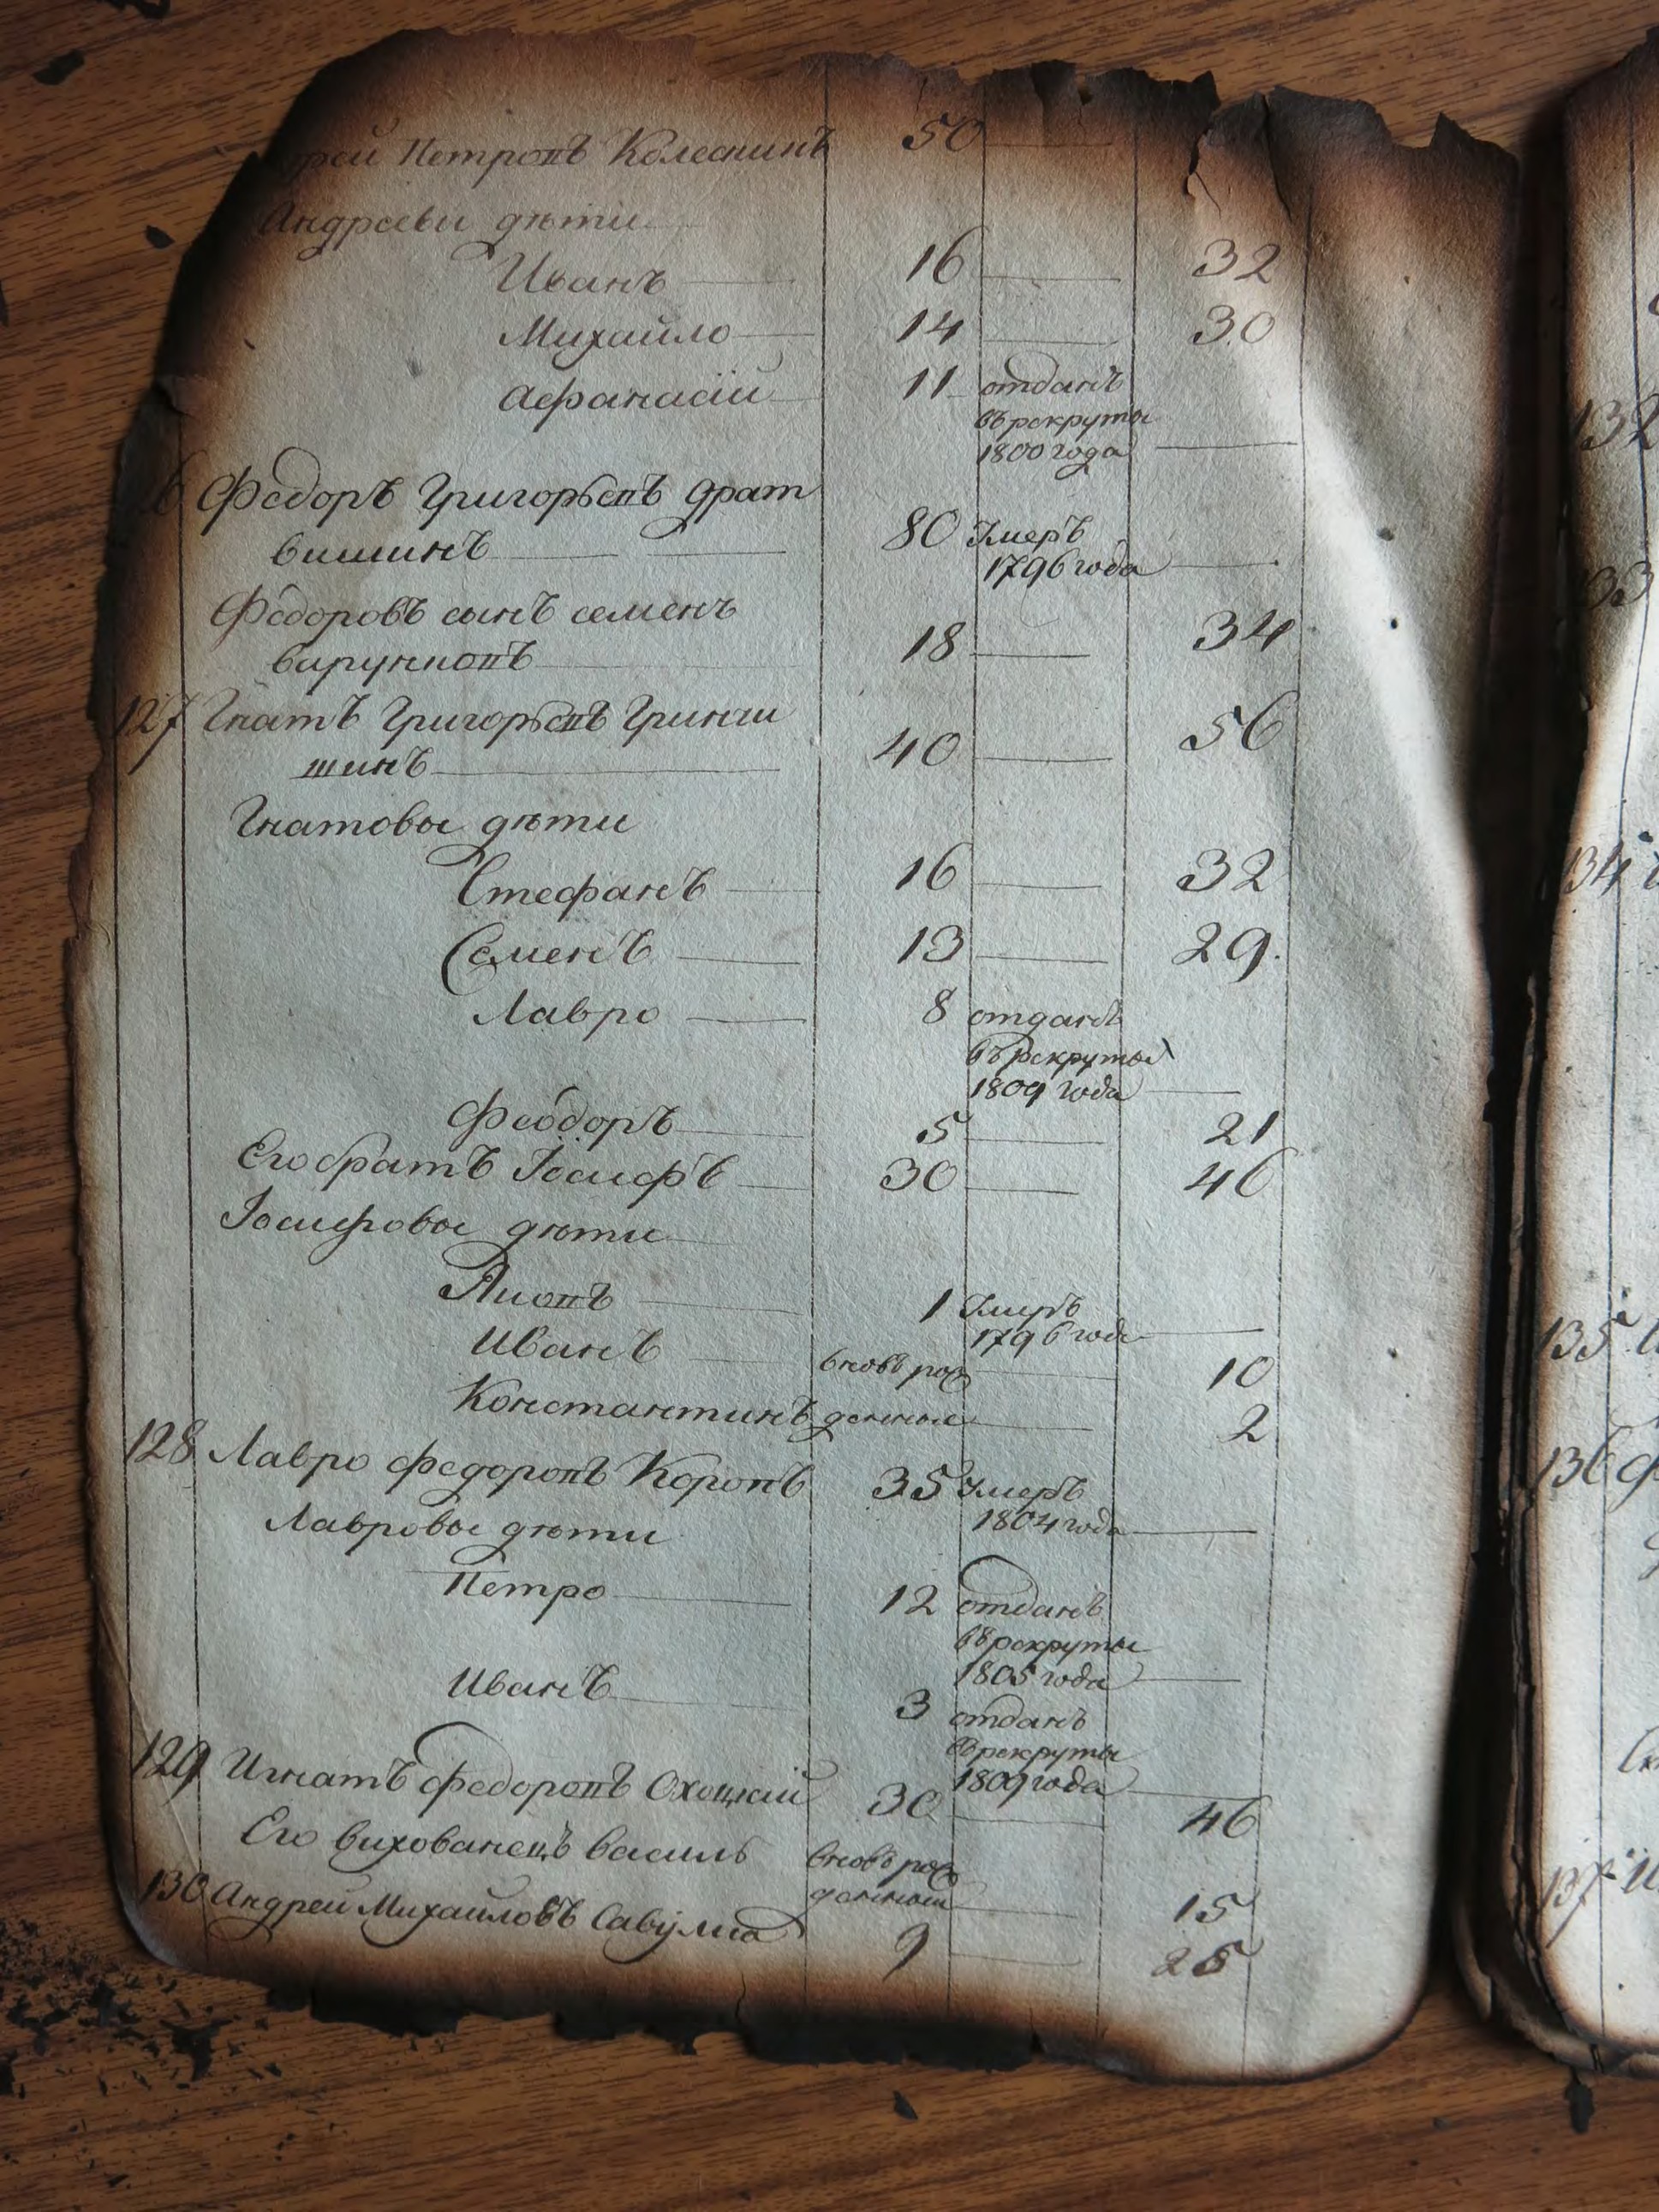 Петровъ Колесникъ 50
Андреевы дѣти
Иванъ 16 32
Михайло 14 30
Афанасiй 11 отданъ
въ рекруты
1800 года
6 Федоръ Григорьевъ драт
вишинъ 80 Умеръ
1796 года
Федоровъ сынъ семенъ
18 34
127 Гнатъ Григорьевъ Гринги
шинъ 40 56
Гнатовы дѣти
Стефанъ 16 32
Семенъ 13 29.
Лавро 8 отданъ
въ рекруты
1809 года
Феодоръ 5 21
Его братъ Iосифъ 30 46
Iосифовы дѣти
1 Умеръ
1796 года
Иванъ вновь рож 10
Константинъ денные 2
128 Лавро Федоровъ Коропъ 35 Умеръ
1804 года
Лавровы дѣти
Петро 12 отданъ
въ рекруты
1805 года
Иванъ 3 отданъ
в рекруты
1809 года
129 Игнатъ Федоровъ Охоцкiй 30 46
Его вихованецъ василь вновь рож
денный 15
130 Андрей Михайловъ Савулка 9 25
132
33
134
135
136
137